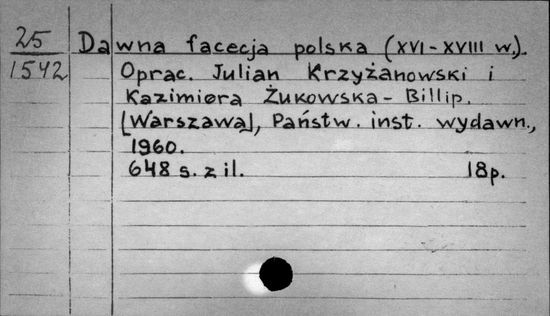 25 Dawna facecja polska (XVI-XVIII w.).
1542 Oprac. Julian Krzyżanowski i
Kazimiera Żukowska-Billip.
[Warszawa], Państw. inst. wydawn.,
1960.
648 s. z il. 18p.